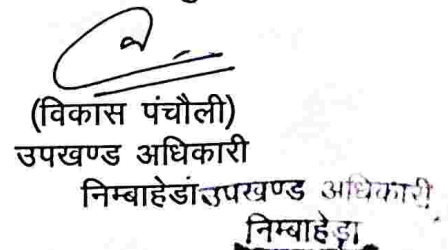 (विकास पंचौली)
उपखण्ड अधिकारी
निम्बाहेडा उपखण्ड अधिकारी
निम्बाहेड़ा